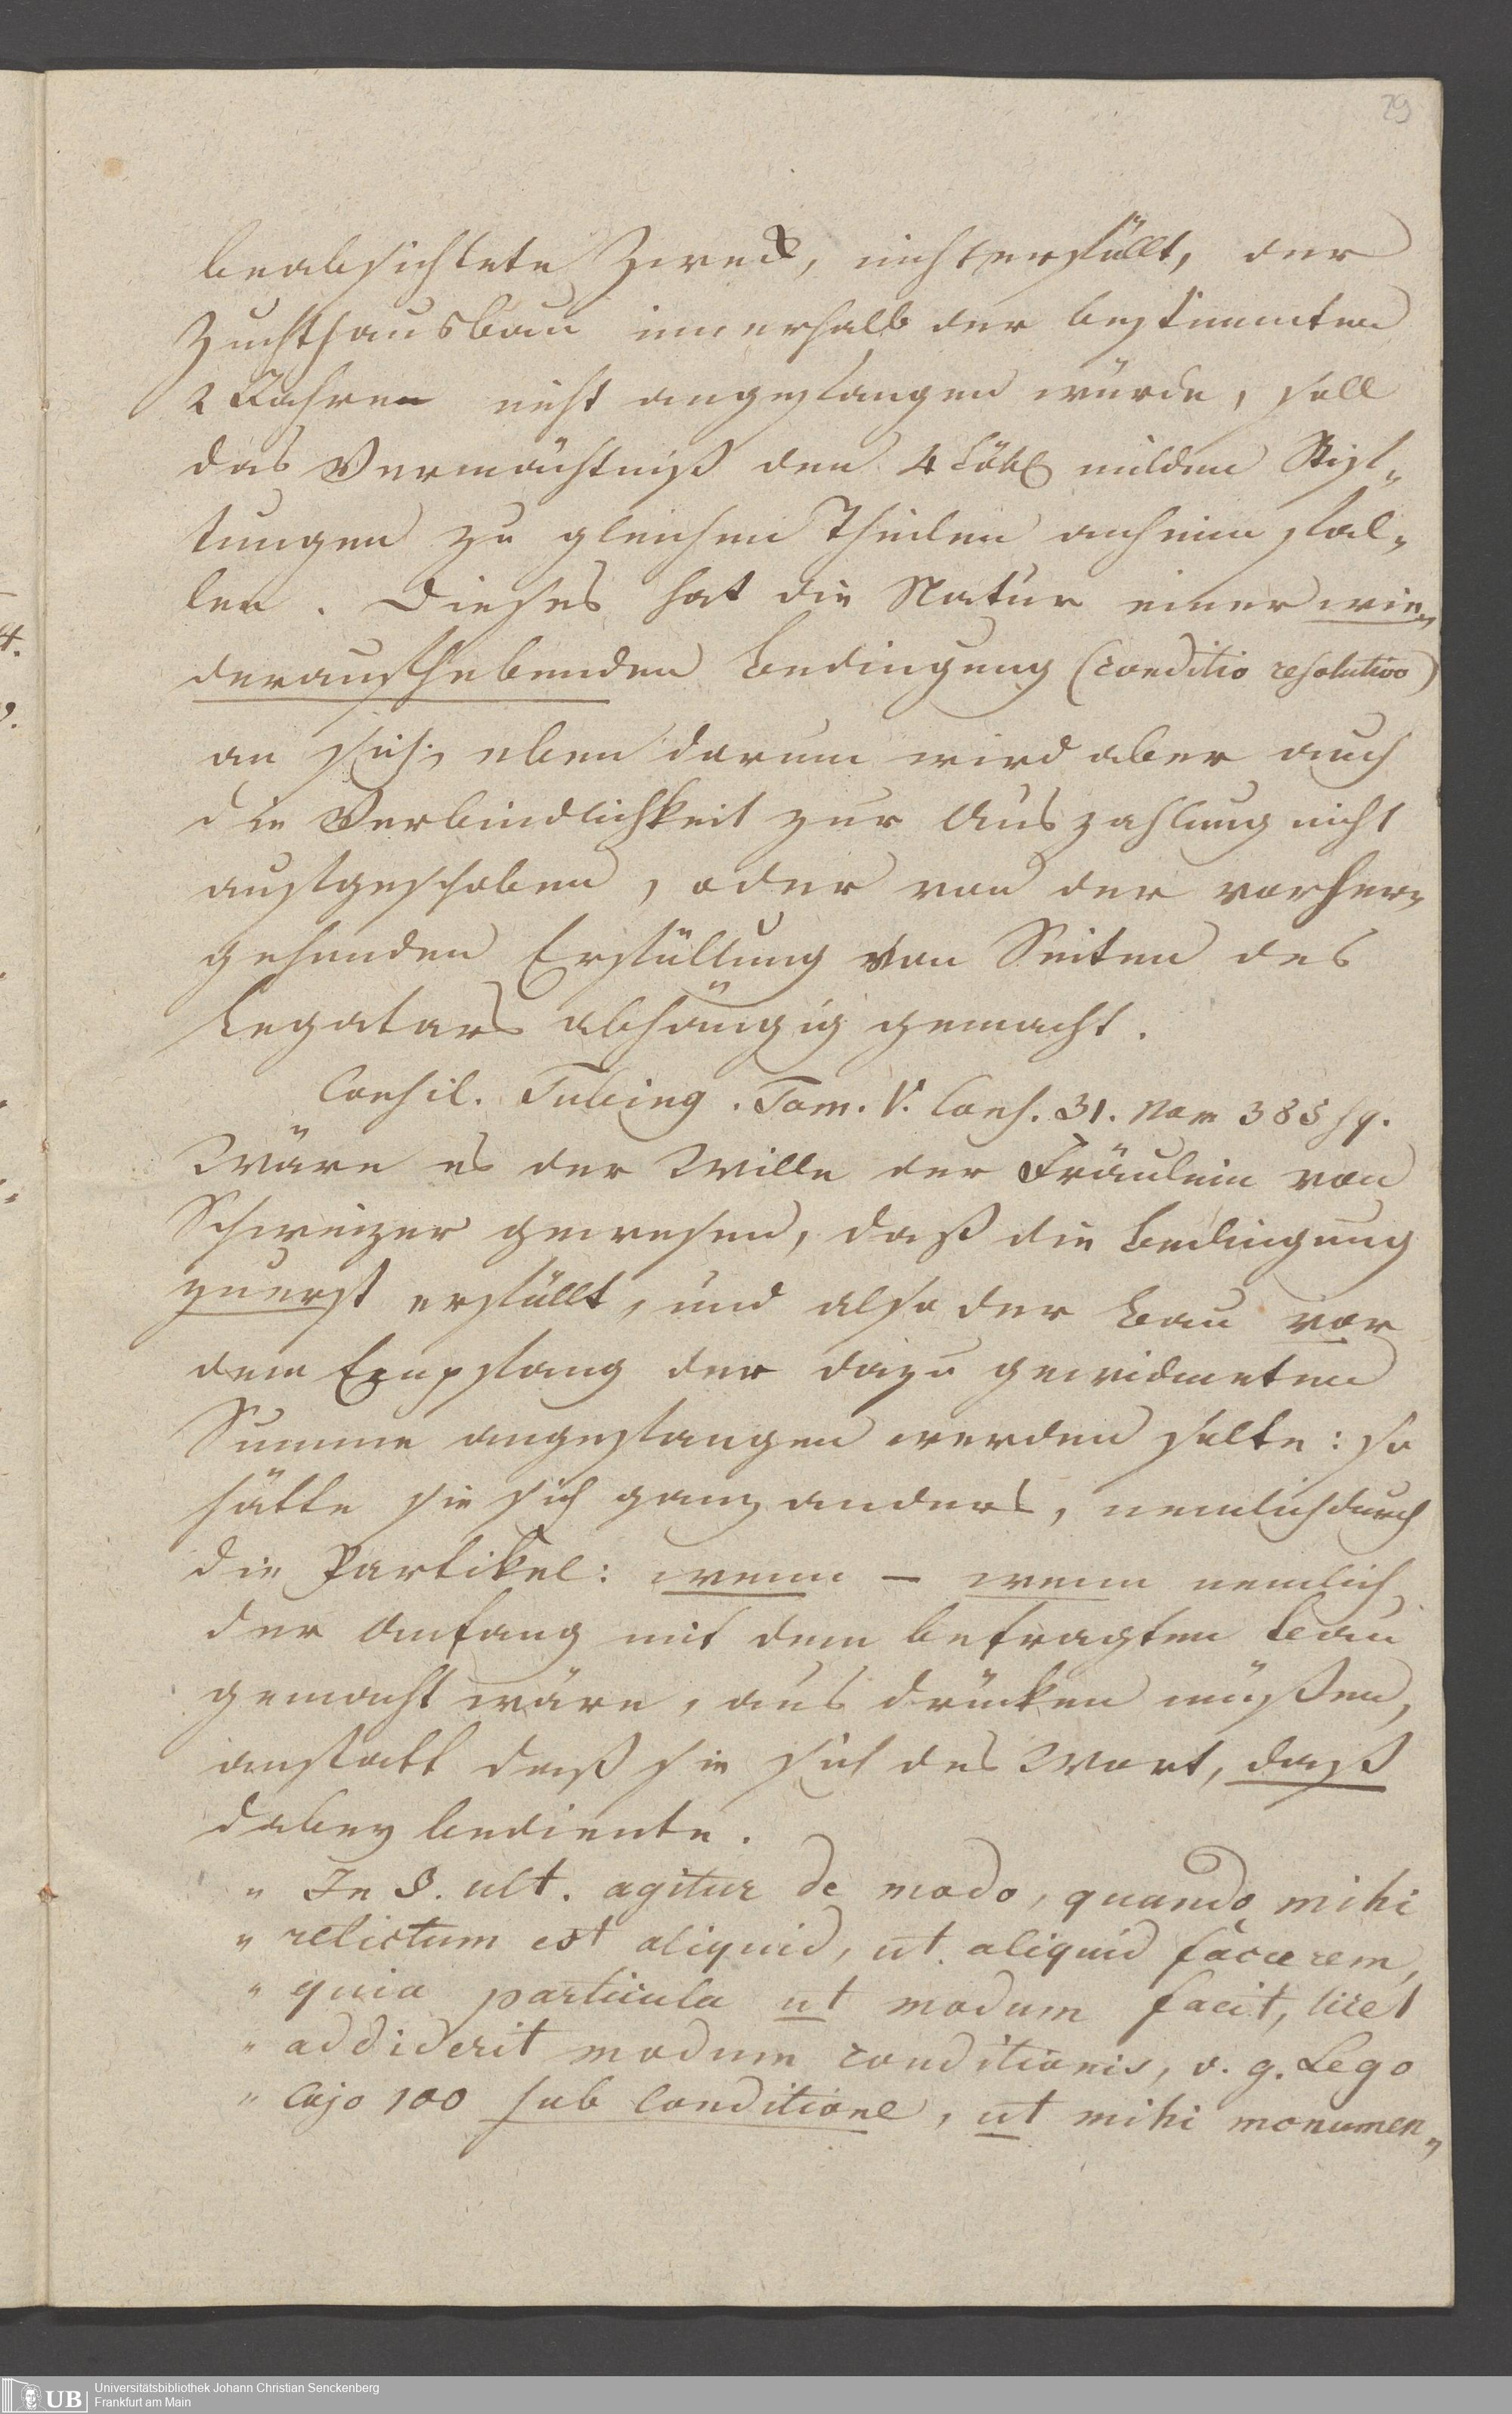 29
beabsichtete Zweck, nicht erfüllt, der
Zuchthausbau innerhalb der bestimmten
2 Jahren nicht angefangen würde, soll
das Vermächtniß den 4 Löbl milden Stif„
tungen zu gleichen Theilen anheim fal„
len. Dieses hat die Natur einer wie„
deraufhebenden Bedingung (conditio resolutiva)
an sich; eben darum wird aber auch
die Verbindlichkeit zur Auszahlung nicht
aufgeschoben, oder von der vorher„
gehenden Erfüllung von Seiten des
Legatars abhängig gemacht.
Consil. Tubing. Tom. V. Cons. 31. Nom 385 sq.
Wäre es der Wille der Fräulein von
Schweizer gewesen, daß die Bedingung
zuerst erfüllt, und also der Bau vor
dem Empfang der dazu gewidmeten
Summe angefangen werden solte: so
hätte sie sich ganz anders, nemlich durch
die Partikel: wenn – wenn nemlich
der Anfang mit dem befragten Bau
gemacht wäre, aus drücken müßen,
anstatt daß sie sich des Wort, daß
dabey bediente.
„ In §. ult. agitur de modo, quando mihi
„ relictum est aliquid, ut aliquid facerem,
„ quia particula ut modum facit, licet
„ addiderit modum conditionis, v. g. Lego
„ Cajo 100 sub conditione, ut mihi monumen„
UB
Universitätsbibliothek Johann Christian Senckenberg
Frankfurt am Main